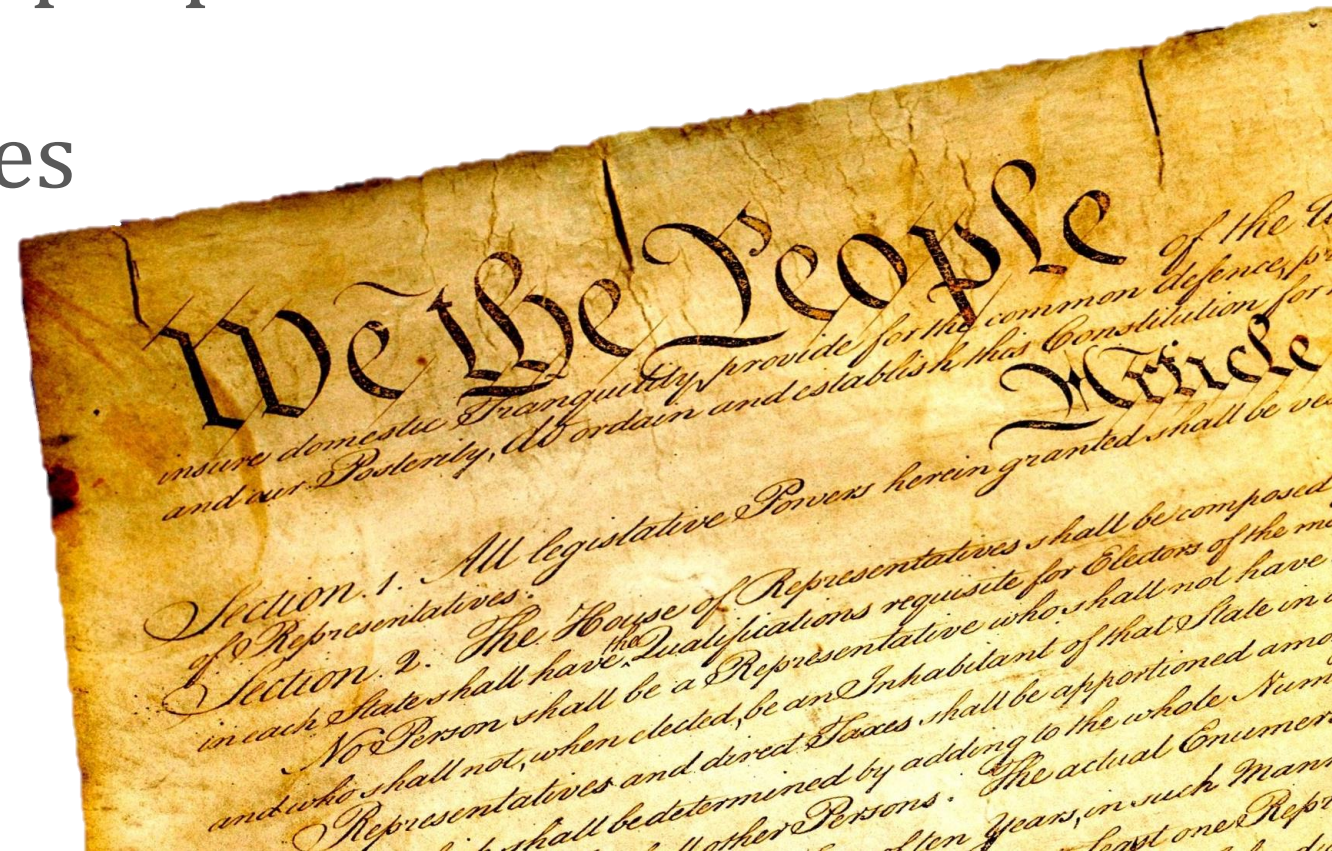 es
We the People of the
insure domestic Tranquility, provide for the common defence,
and our Posterity, do ordain and establish this Constitution for
Article
Section. 1. All legislative Powers herein granted shall be
of Representatives.
Section. 2. The House of Representatives shall be composed
in each State shall have the Qualifications requisite for Electors of the
No Person shall be a Representative who shall not have
and who shall not, when elected, be an Inhabitant of that State in
Representatives and direct Taxes shall be apportioned
shall be determined by adding to the whole
all other Persons. The actual
of ten Years, in such
least one